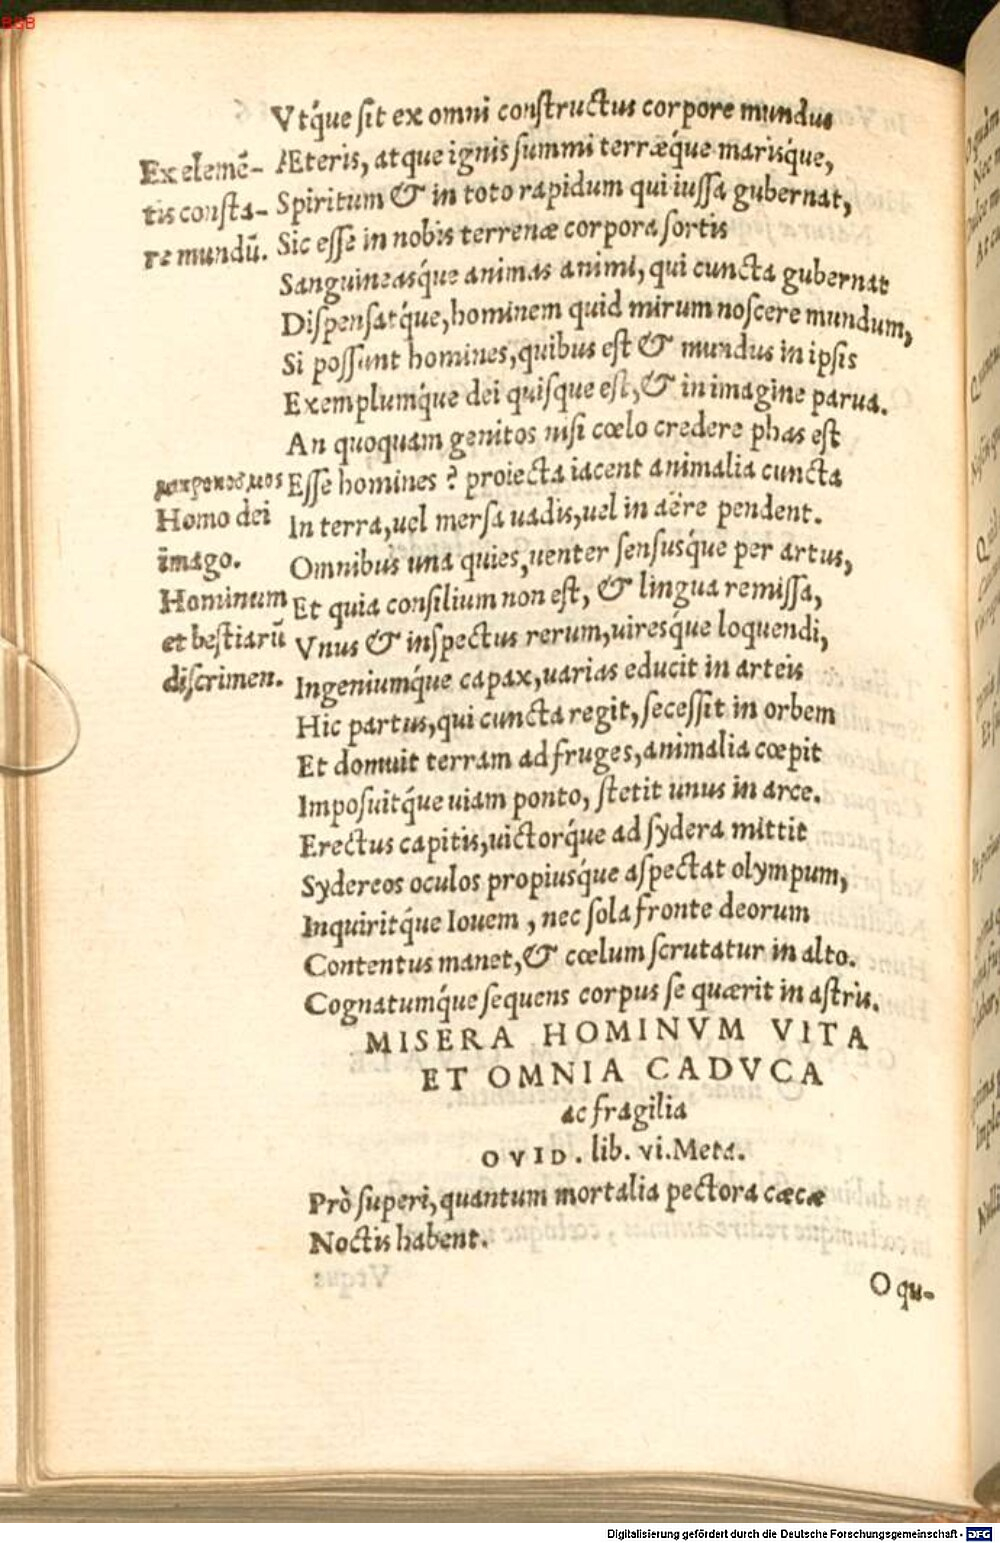 BSB
Vtq́ue sit ex omni constructus corpore mundus
Ætteris, atque ignis summi terræq́ue marisq́ue,
Spiritum & in toto rapidum qui iussa gubernat,
Sic esse in nobis terrenæ corpora sortis
Sanguineasq́ue animas animi, qui cuncta gubernat
Dispensatq́ue, hominem quid mirum noscere mundum,
Si possunt homines, quibus est & mundus in ipsis
Exemplumq́ue dei quisque est, & in imagine parua.
An quoquam genitos nisi cœlo credere phas est
Esse homines? proiecta iacent animalia cuncta
In terra, uel mersa uadis, uel in aëre pendent.
Omnibus una quies, uenter sensusq́ue per artus,
Et quia consilium non est, & lingua remissa,
Vnus & inspectus rerum, uiresq́ue loquendi,
Ingeniumq́ue capax, uarias educit in arteis
Hic partus, qui cuncta regit, secessit in orbem
Et domuit terram ad fruges, animalia cœpit
Imposuitq́ue uiam ponto, stetit unus in arce.
Erectus capitis, uictorq́ue ad sydera mittit
Sydereos oculos propiusq́ue aspectat olympum,
Inquiritq́ue Iouem, nec sola fronte deorum
Contentus manet, & cœlum scrutatur in alto.
Cognatumq́ue sequens corpus se quærit in astris.
Ex elemē-
tis consta-
re mundū.
μικρόκοσμος
Homo dei
imago.
Hominum
et bestiarū
discrimen.
MISERA HOMINVM VITA
ET OMNIA CADVCA
ac fragilia
OVID. lib. vi. Meta.
Prò superi, quantum mortalia pectora cæcæ
Noctis habent.
O qu-
Digitalisierung gefördert durch die Deutsche Forschungsgemeinschaft - DFG